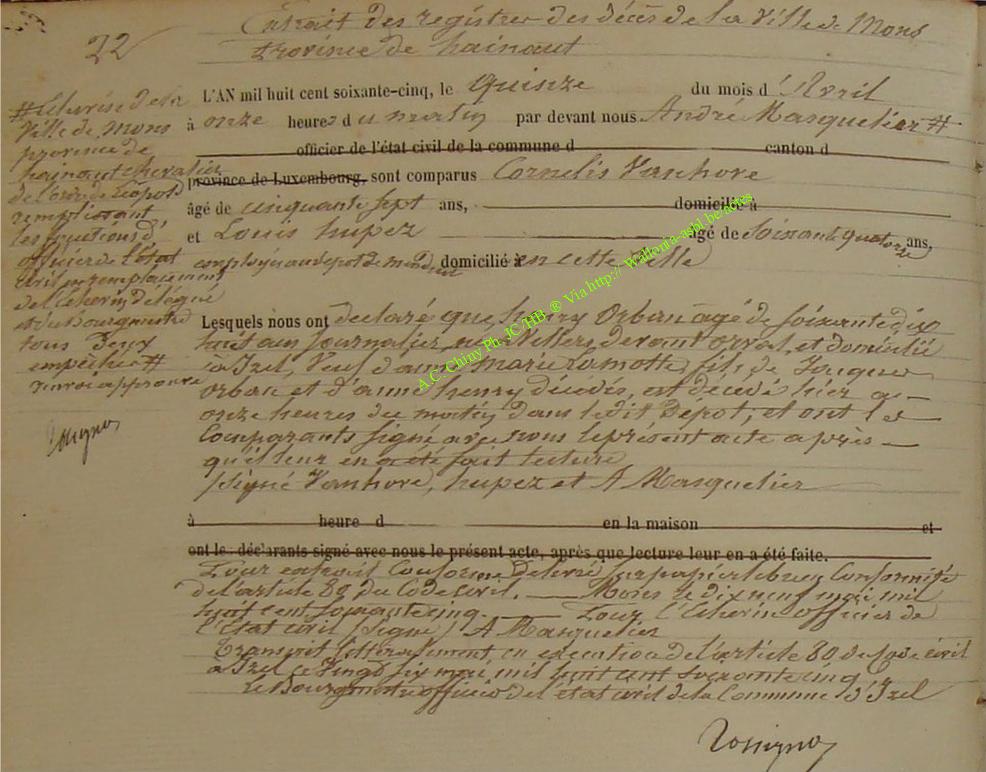 Extrait des registres des décès de la Ville de Mons
22
Province de hainaut
L'AN mil huit cent soixante-cinq, le quinze du mois d'Avril
à onze heures du matin par devant nous André Masquelier #
officier de l'état civil de la commune d canton d
province de Luxembourg, sont comparus Cornelis Vanhove
âgé de cinquante sept ans, domicilié à
et Louis hupez âgé de Soixante quatorze ans,
employés au depot de domicilié à en cette Ville
# Echevin de la
Ville de Mons
province de
hainaut chevalier
de l'ordre Léopold
remplissant
les fonctions d'
officier de l'état
civil en remplacement
de l'échevin délégué
et du Bourgmestre
tous deux
empêchés #
renvoi approuvé
Rossignon
Lesquels nous ont declaré que henry Orban agé de soixante dix
huit ans journalier, né à Villers devant orval, et domicilié
à Izel, Veuf d'anne marie Lamotte, fils de Jacques
Orban et d'anne henry décédés, est décédé hier à
onze heures du matin dans le dit Depot, et ont les
Comparants signé avec nous le présent acte après
qu'il leur en a été fait lecture
(signé Vanhove, hupez et A Masquelier
à heure d en la maison et
ont les déclarants signé avec nous le présent acte, après que lecture leur en a été faite.
Pour extrait Conforme Délivré sur papier libre en Conformité
de l'article 80 du Code Civil. Mons le dix neuf mai mil
huit cent soixante cinq. Pour l'Echevin officier de
l'Etat civil (signé) A Masquelier
Transcrit littéralement en exécution de l'article 80 du Code civil
à Izel ce Vingt six mai, mil huit cent soixante cinq
Le Bourgmestre officier de l'état civil de la Commune d'Izel
Rossignon
A.C. Chiny Ph. JC/HB ® Via http:// Wallonia-asbl.be/ates